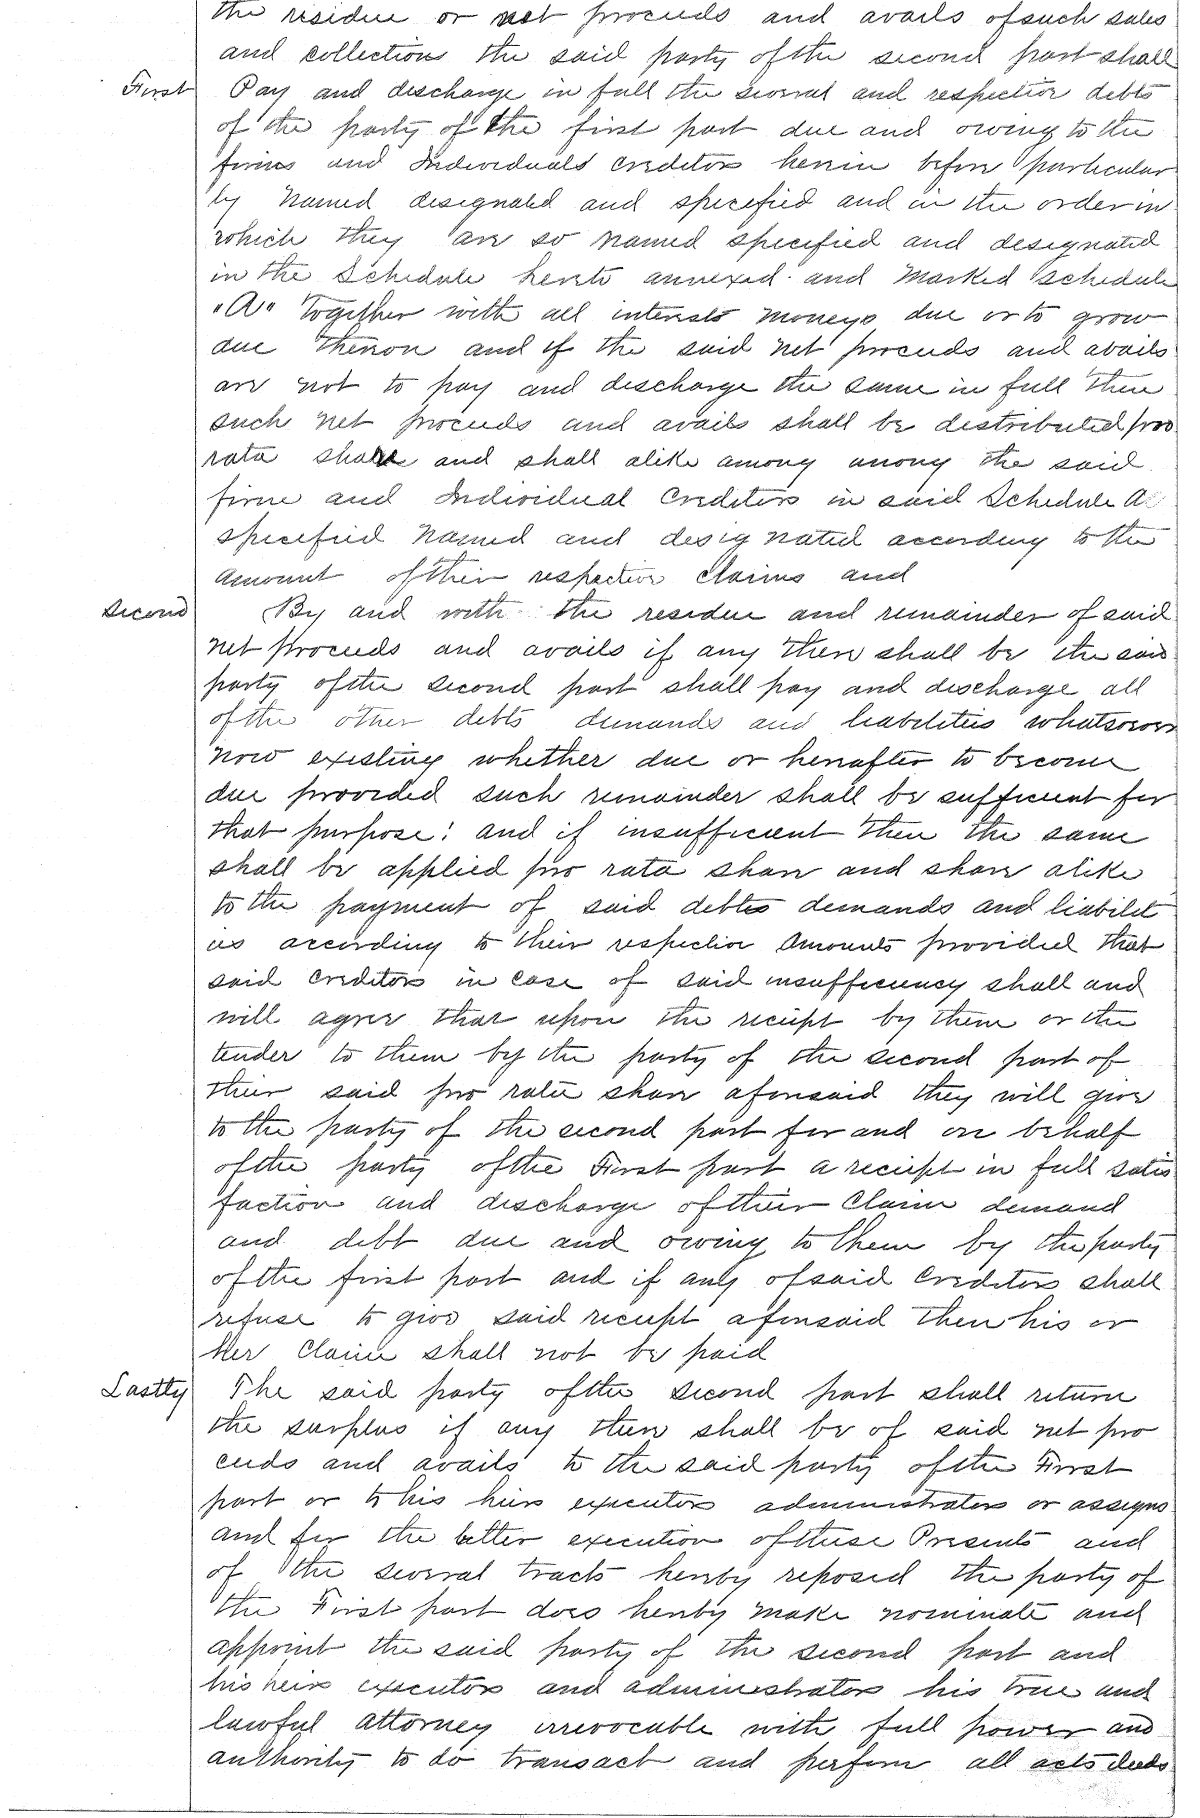 the residue or net proceeds and avails of such sales
and collections the said party of the second part shall
First Pay and discharge in full the several and respective debts
of the party of the first part due and owing to the
firms and Individuals creditors herein before particular
ly named designated and specified and in the order in
which they are so named specified and designated
in the Schedule hereto annexed and marked schedule
"A" together with all interests moneys due or to grow
due thereon and if the said net proceeds and avails
are not to pay and discharge the same in full then
such net proceeds and avails shall be distributed pro
rata share and shall alike among among the said
firm and Individual Creditors in said Schedule A
specified named and designated according to the
amount of their respective claims and
Second By and with the residue and remainder of said
net proceeds and avails if any there shall be the said
party of the second part shall pay and discharge all
of the other debts demands and liabilities whatsoever
now existing whether due or hereafter to become
due provided such remainder shall be sufficient for
that purpose: and if insufficient then the same
shall be applied pro rata share and share alike
to the payment of said debts demands and liabilit
ies according to their respective amounts provided that
said creditors in case of said insufficiency shall and
will agree that upon the receipt by them or the
tender to them by the party of the second part of
their said pro rata share aforesaid they will give
to the party of the second part for and on behalf
of the party of the First part a reciept in full satis
faction and discharge of their Claim demand
and debt due and owing to them by the party
of the first part and if any of said Creditors shall
refuse to give said reciept aforesaid then his or
her Claim shall not be paid
Lastly The said party of the second part shall return
the surplus if any there shall be of said net pro
ceeds and avails to the said party of the First
part or to his heirs executors administrators or assigns
and for the better execution of these Presents and
of the several tracts hereby reposed the party of
the First part does hereby make nominate and
appoint the said party of the second part and
his heirs executors and administrators his true and
lawful attorney irrevocable with full power and
authority to do transact and perform all acts deeds